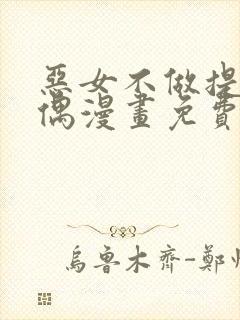 惡女不做提
偶漫畫免費
烏魯木齊-鄭